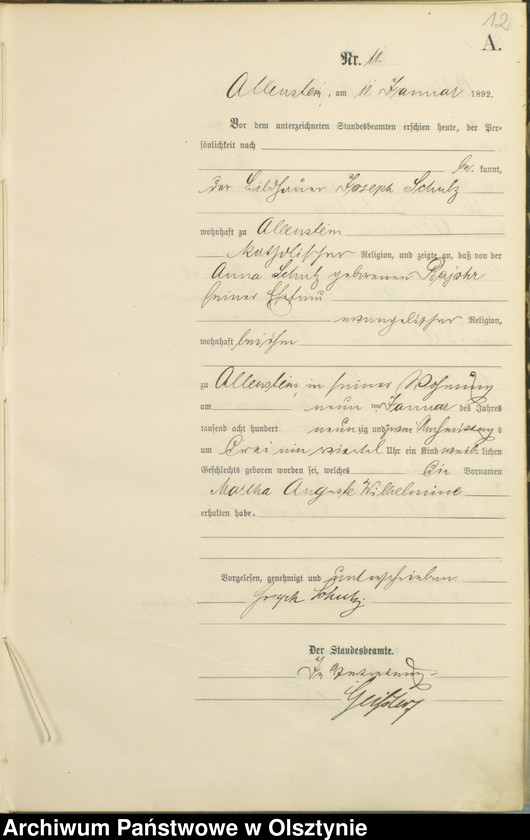 12
A.
Nr. 11.
Allenstein, am 11. Januar 1892.
Vor dem unterzeichneten Standesbeamten erschien heute, der Per-
sönlichkeit nach
be kannt,
der Bildhauer Joseph Schulz
wohnhaft zu Allenstein
katholischer Religion, und zeigte an, daß von der
Anna Schulz geborenen Bajohr
seiner Ehefrau
evangelischer Religion,
wohnhaft bei ihm
zu Allenstein, in seiner Wohnung
am neun ten Januar des Jahres
tausend acht hundert neun zig und zwei Nachmittags
um drei ein viertel Uhr ein Kind weib lichen
Geschlechts geboren worden sei, welches die Vornamen
Martha Auguste Wilhelmine
erhalten habe.
Vorgelesen, genehmigt und unterschrieben
Joseph Schulz
Der Standesbeamte.
In Vertretung
Archiwum Państwowe w Olsztynie